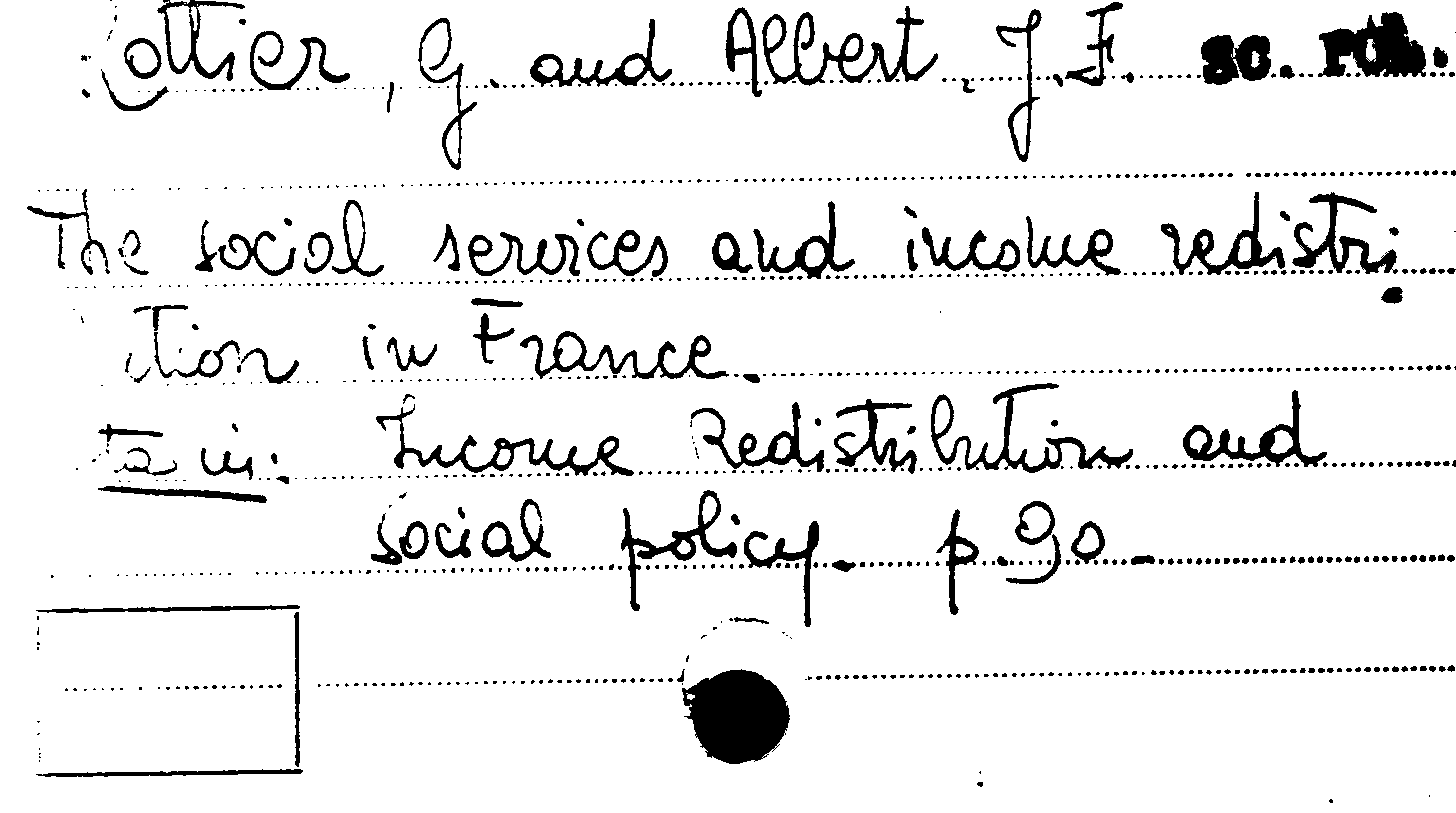 Rottier, G. and Albert, J.F. SC. POL.
The social services and income redistri
tion in France.
ta in: Income Redistribution and
social policy. p.90-